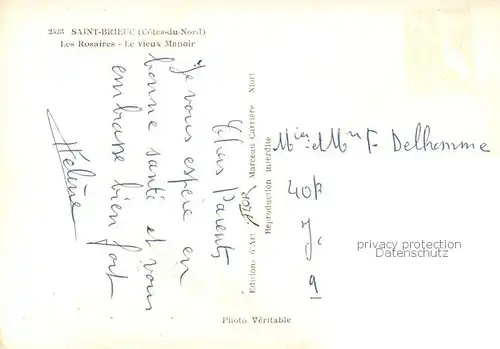 2523 SAINT-BRIEUC (Côtes-du-Nord)
Les Rosaires - Le vieux Manoir
Chers Parents
Je vous espère en
bonne santé et vous
embrasse bien fort
Hélène
Editions d'Art "JOP" Marceau Carrière Niort
Reproduction interdite
Mr et Mme F Delhomme
40k
Je
9
Photo Véritable
privacy protection
Datenschutz